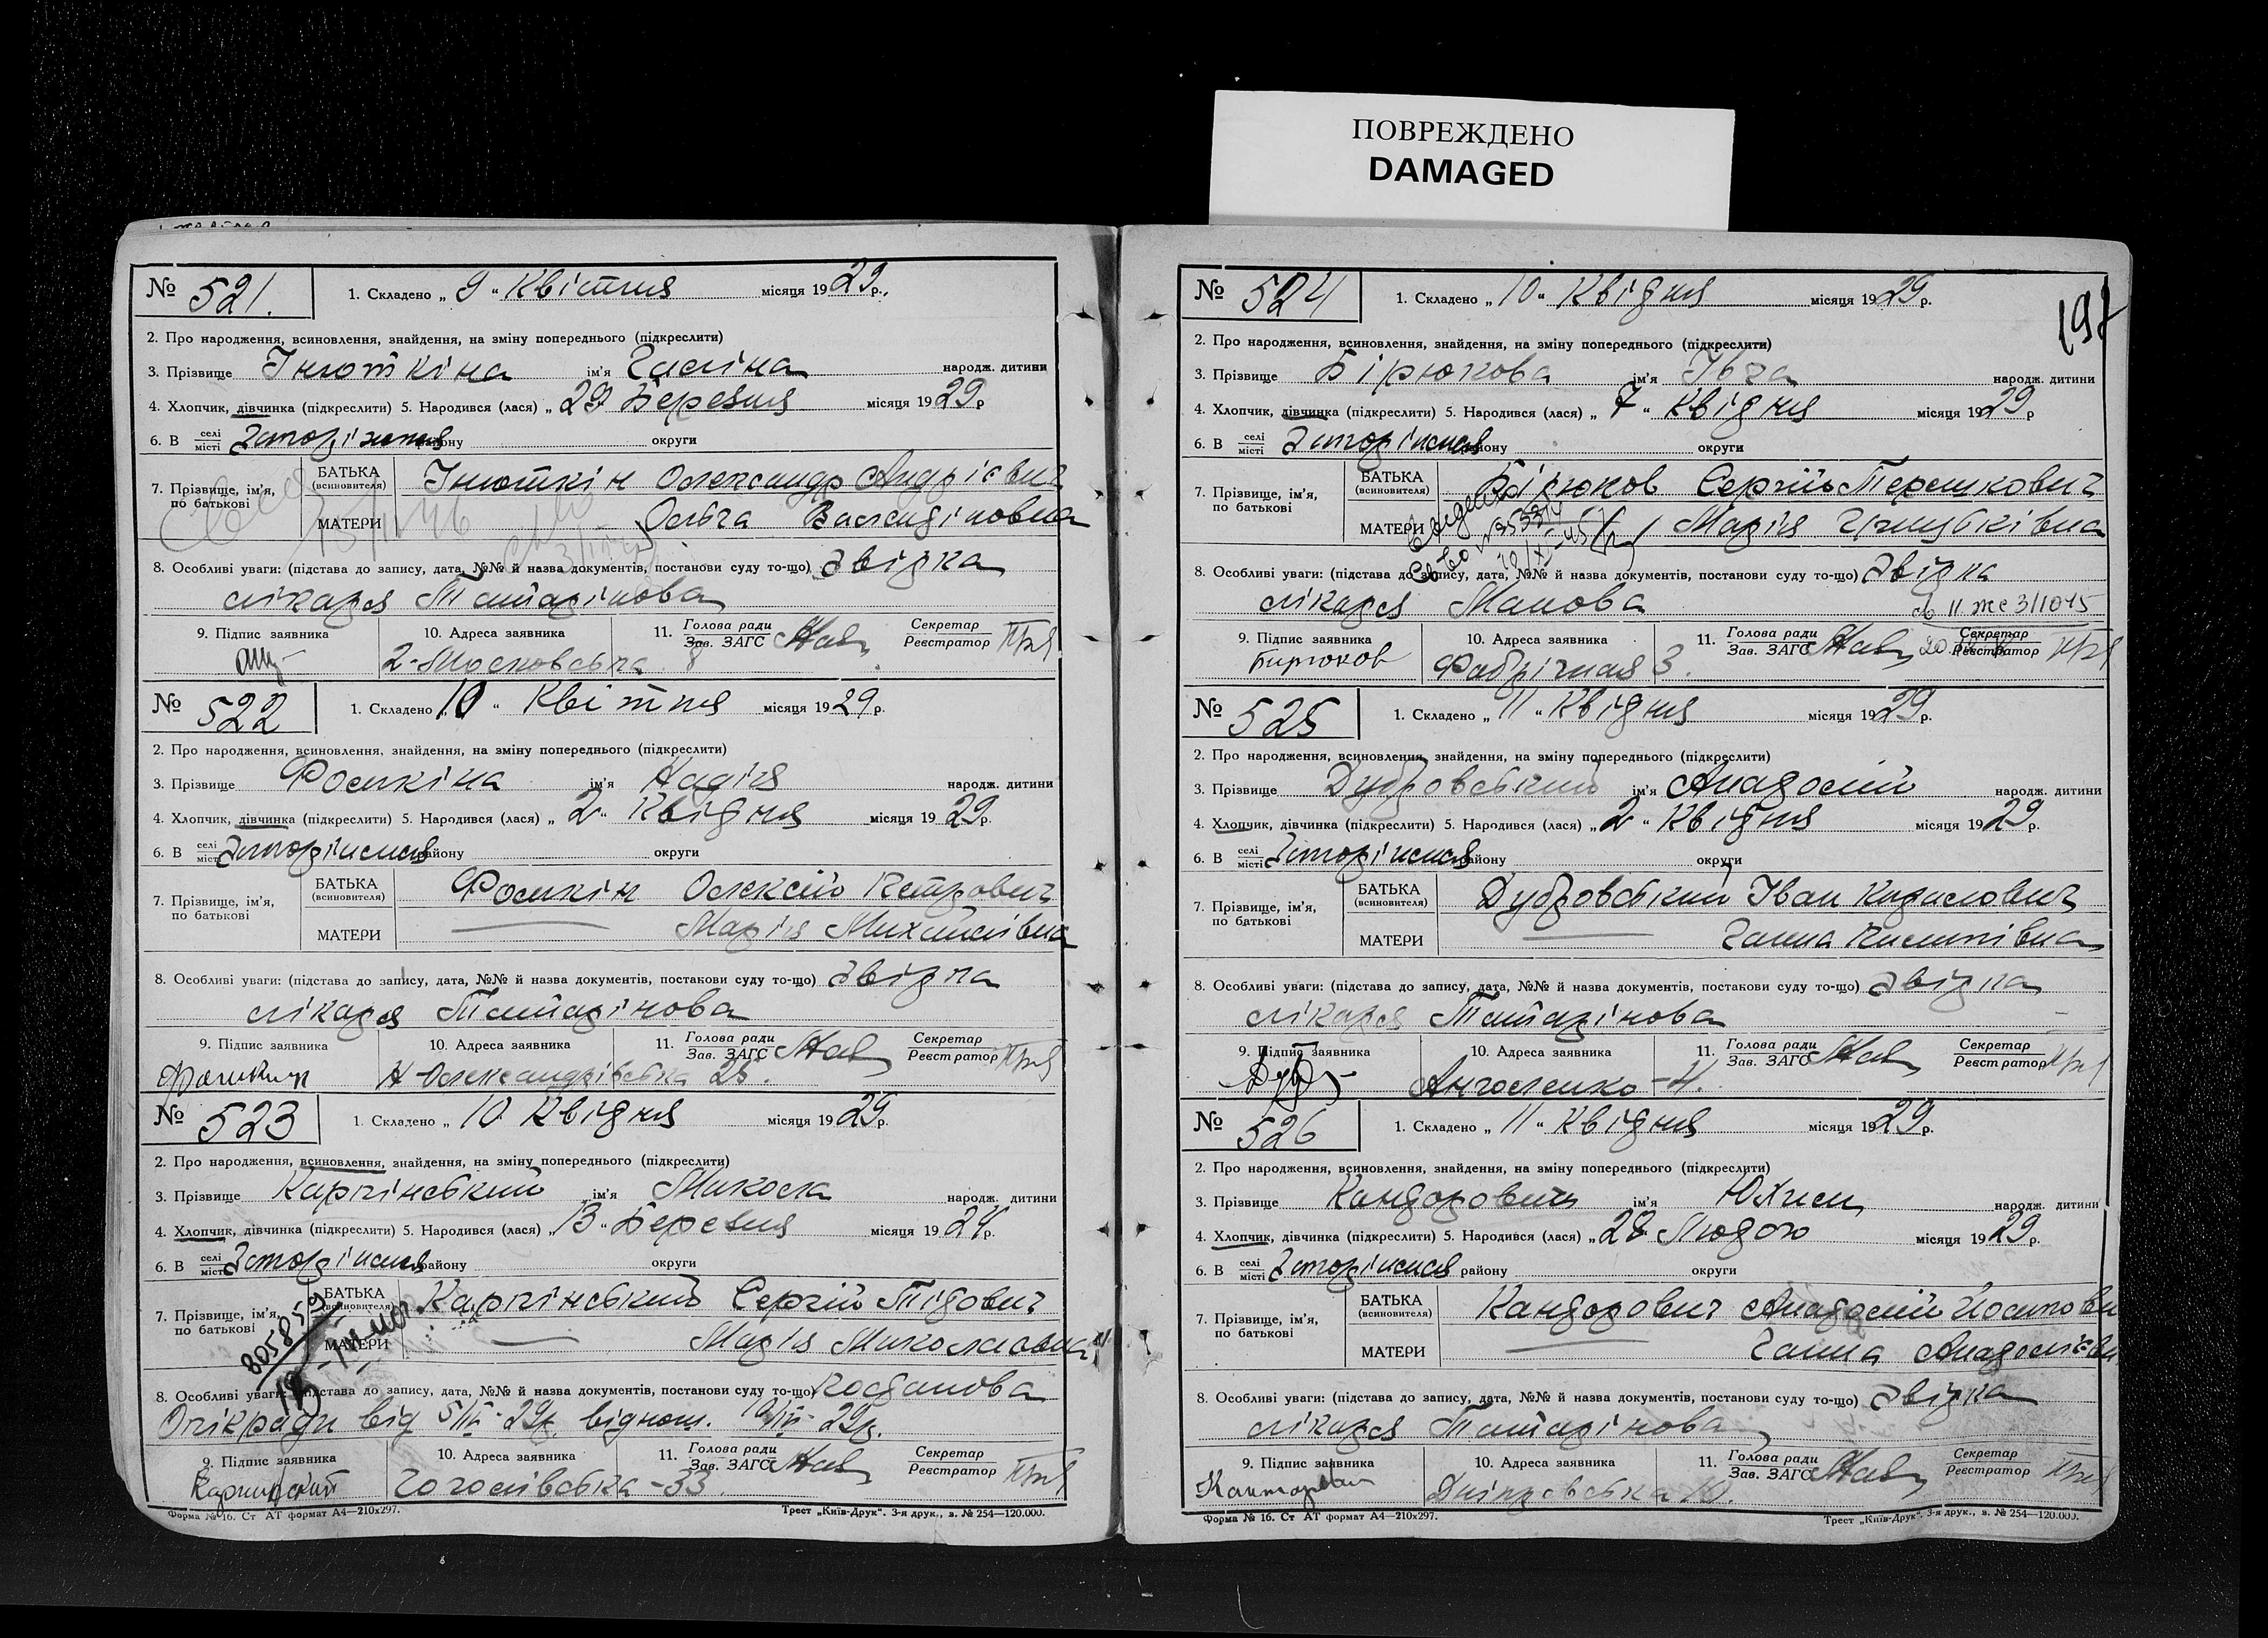 ПОВРЕЖДЕНО
DAMAGED
№ 521. 1. Складено „ 9 “ Квітня місяця 1929 р.
2. Про народження, всиновлення, знайдення, на зміну попереднього (підкреслити)
3. Прізвище Інюткіна ім'я Галіна народж. дитини
4. Хлопчик, дівчинка (підкреслити) 5. Народився (лася) „ 29 Березня місяця 1929 р
6. В селі місті Запоріжжя району округи
7. Прізвище, ім'я, по батькові
БАТЬКА (всиновителя) Інюткін Олександр Андрієвич
МАТЕРИ Ольга
8. Особливі уваги: (підстава до запису, дата, №№ й назва документів, постанови суду то-що) Звідка
лікаря Татарінова
9. Підпис заявника 10. Адреса заявника 11. Голова ради Зав. ЗАГС Секретар Реєстратор
2-Московська 8
№ 522 1. Складено „ 10 “ Квітня місяця 1929 р.
2. Про народження, всиновлення, знайдення, на зміну попереднього (підкреслити)
3. Прізвище Фомкіна ім'я Надія народж. дитини
4. Хлопчик, дівчинка (підкреслити) 5. Народився (лася) „ 2 “ Квідня місяця 1929 р.
6. В селі місті Запоріжжя району округи
7. Прізвище, ім'я, по батькові
БАТЬКА (всиновителя) Фомкін Олексій Петрович
МАТЕРИ Марія Михайлівна
8. Особливі уваги: (підстава до запису, дата, №№ й назва документів, постакови суду то-що) Звідка
лікаря Татарінова
9. Підпис заявника 10. Адреса заявника 11. Голова ради Зав. ЗАГС Секретар Реєстратор
Фомкин Н-Олександрівська 25.
№ 523 1. Складено „ 10 Квідня місяця 1929 р.
2. Про народження, всиновлення, знайдення, на зміну попереднього (підкреслити)
3. Прізвище Каргінський ім'я Микола народж. дитини
4. Хлопчик, дівчинка (підкреслити) 5. Народився (лася) „ 13 “ Березня місяця 1924 р.
6. В селі місті Запоріжжя району округи
7. Прізвище, ім'я, по батькові
БАТЬКА (всиновителя) Каргінський Сергій Тітович
МАТЕРИ Марія Миколаївна
8. Особливі уваги: (підстава до запису, дата, №№ й назва документів, постанови суду то-що)
Опікради від 5/IV-29р. віднош. 29р.
9. Підпис заявника 10. Адреса заявника 11. Голова ради Зав. ЗАГС Секретар Реєстратор
Каргинский Гоголівська -33.
Форма № 16. Ст АТ формат А4—210х297. Трест „Київ-Друк“. 3-я друк., з. № 254—120.000.
№ 524 1. Складено „ 10 “ Квідня місяця 1929 р.
2. Про народження, всиновлення, знайдення, на зміну попереднього (підкреслити)
3. Прізвище Бірюкова ім'я народж. дитини
4. Хлопчик, дівчинка (підкреслити) 5. Народився (лася) „ 7 “ Квідня місяця 1929 р
6. В селі місті Запоріжжя району округи
7. Прізвище, ім'я, по батькові
БАТЬКА (всиновителя) Бірюков Сергій
МАТЕРИ Марія
8. Особливі уваги: (підстава до запису, дата, №№ й назва документів, постанови суду то-що) Звідка
лікаря Манова
9. Підпис заявника 10. Адреса заявника 11. Голова ради Зав. ЗАГС Секретар Реєстратор
Бирюков Фабрічная 3.
№ 525 1. Складено „ 11 “ Квідня місяця 1929 р.
2. Про народження, всиновлення, знайдення, на зміну попереднього (підкреслити)
3. Прізвище Дубровський ім'я Анадолій народж. дитини
4. Хлопчик, дівчинка (підкреслити) 5. Народився (лася) „ 2 “ Квідня місяця 1929 р.
6. В селі місті Запоріжжя району округи
7. Прізвище, ім'я, по батькові
БАТЬКА (всиновителя) Дубровський Іван
МАТЕРИ Ганна
8. Особливі уваги: (підстава до запису, дата, №№ й назва документів, постакови суду то-що) Звідка
лікаря Татарінова
9. Підпис заявника 10. Адреса заявника 11. Голова ради Зав. ЗАГС Секретар Реєстратор
-4.
№ 526 1. Складено „ 11 “ Квідня місяця 1929 р.
2. Про народження, всиновлення, знайдення, на зміну попереднього (підкреслити)
3. Прізвище Кандорович ім'я Юхим народж. дитини
4. Хлопчик, дівчинка (підкреслити) 5. Народився (лася) „ 28 Людого місяця 1929 р.
6. В селі місті Запоріжжя району округи
7. Прізвище, ім'я, по батькові
БАТЬКА (всиновителя) Кандорович Анадолій Йосипови
МАТЕРИ Ганна Анадоліэвн
8. Особливі уваги: (підстава до запису, дата, №№ й назва документів, постанови суду то-що) Звідка
лікаря Татарінова
9. Підпис заявника 10. Адреса заявника 11. Голова ради Зав. ЗАГС Секретар Реєстратор
Канторович Дніпровська 10.
Форма № 16. Ст АТ формат А4—210х297. Трест „Київ-Друк“. 3-я друк., з. № 254—120.000.